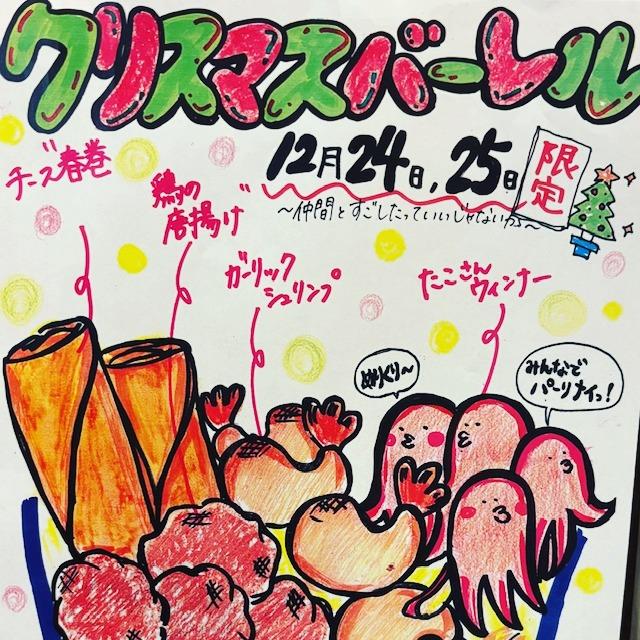 クリスマスバーレル
12月24日,25日
限定
〜仲間とすごしたっていいじゃないか〜
チーズ春巻
鶏の
唐揚げ
ガーリック
シュリンプ
たこさん
ウィンナー
めりくり〜
みんなで
パーリナイっ!